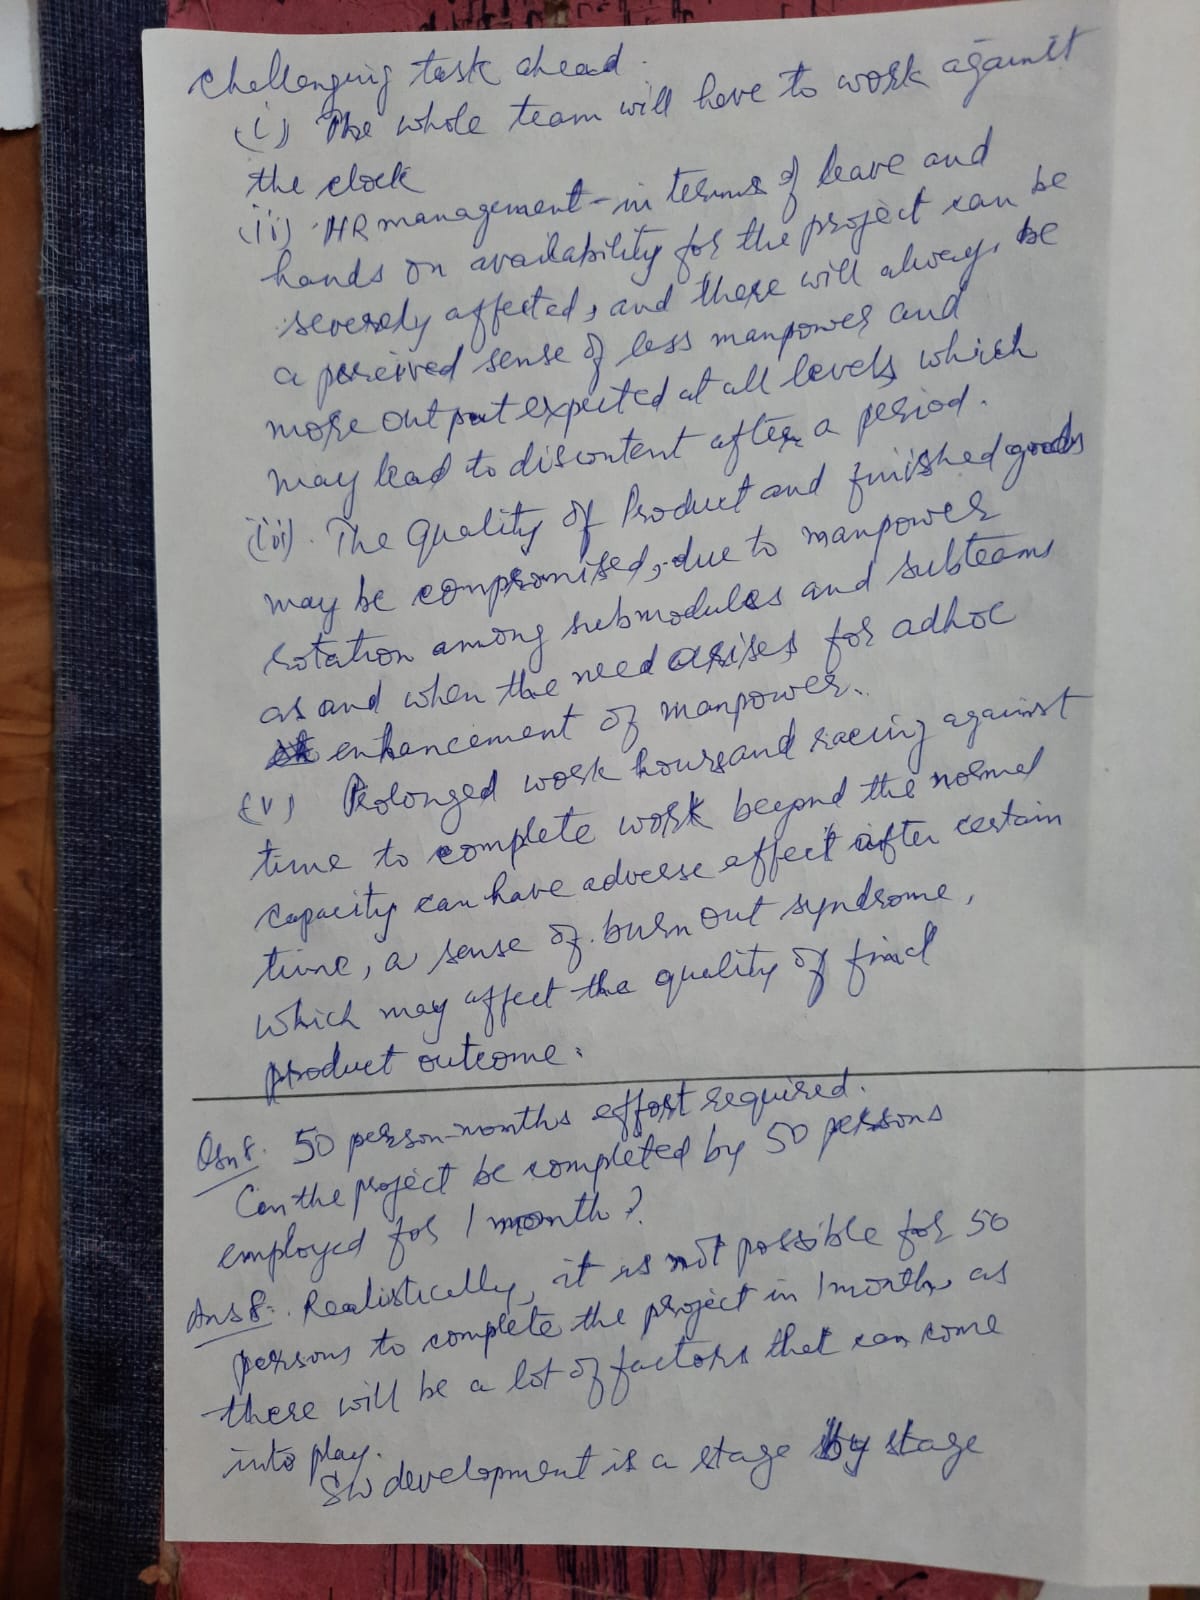 challenging task ahead.
(i) The whole team will have to work against
the clock
(ii) HR management - in terms of leave and
hands on availability for the project can be
severely affected, and there will always be
a perceived sense of less manpower and
more output expected at all levels which
may lead to discontent after a period.
(iii). The Quality of Product and finished goods
may be compromised, due to manpower
rotation among submodules and subteams
as and when the need arises for adhoc
enhancement of manpower.
(v) Prolonged work hours and racing against
time to complete work beyond the normal
capacity can have adverse affect after certain
time, a sense of burn out syndrome,
which may affect the quality of final
product outcome.
Qsn 8. 50 person-months effort required.
Can the project be completed by 50 persons
employed for 1 month?
Ans 8:. Realistically, it is not possible for 50
persons to complete the project in 1 month, as
there will be a lot of factors that can come
into play.
SW development is a stage by stage